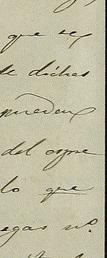 que se
de dichas
pueden
del
lo que
egas nº.